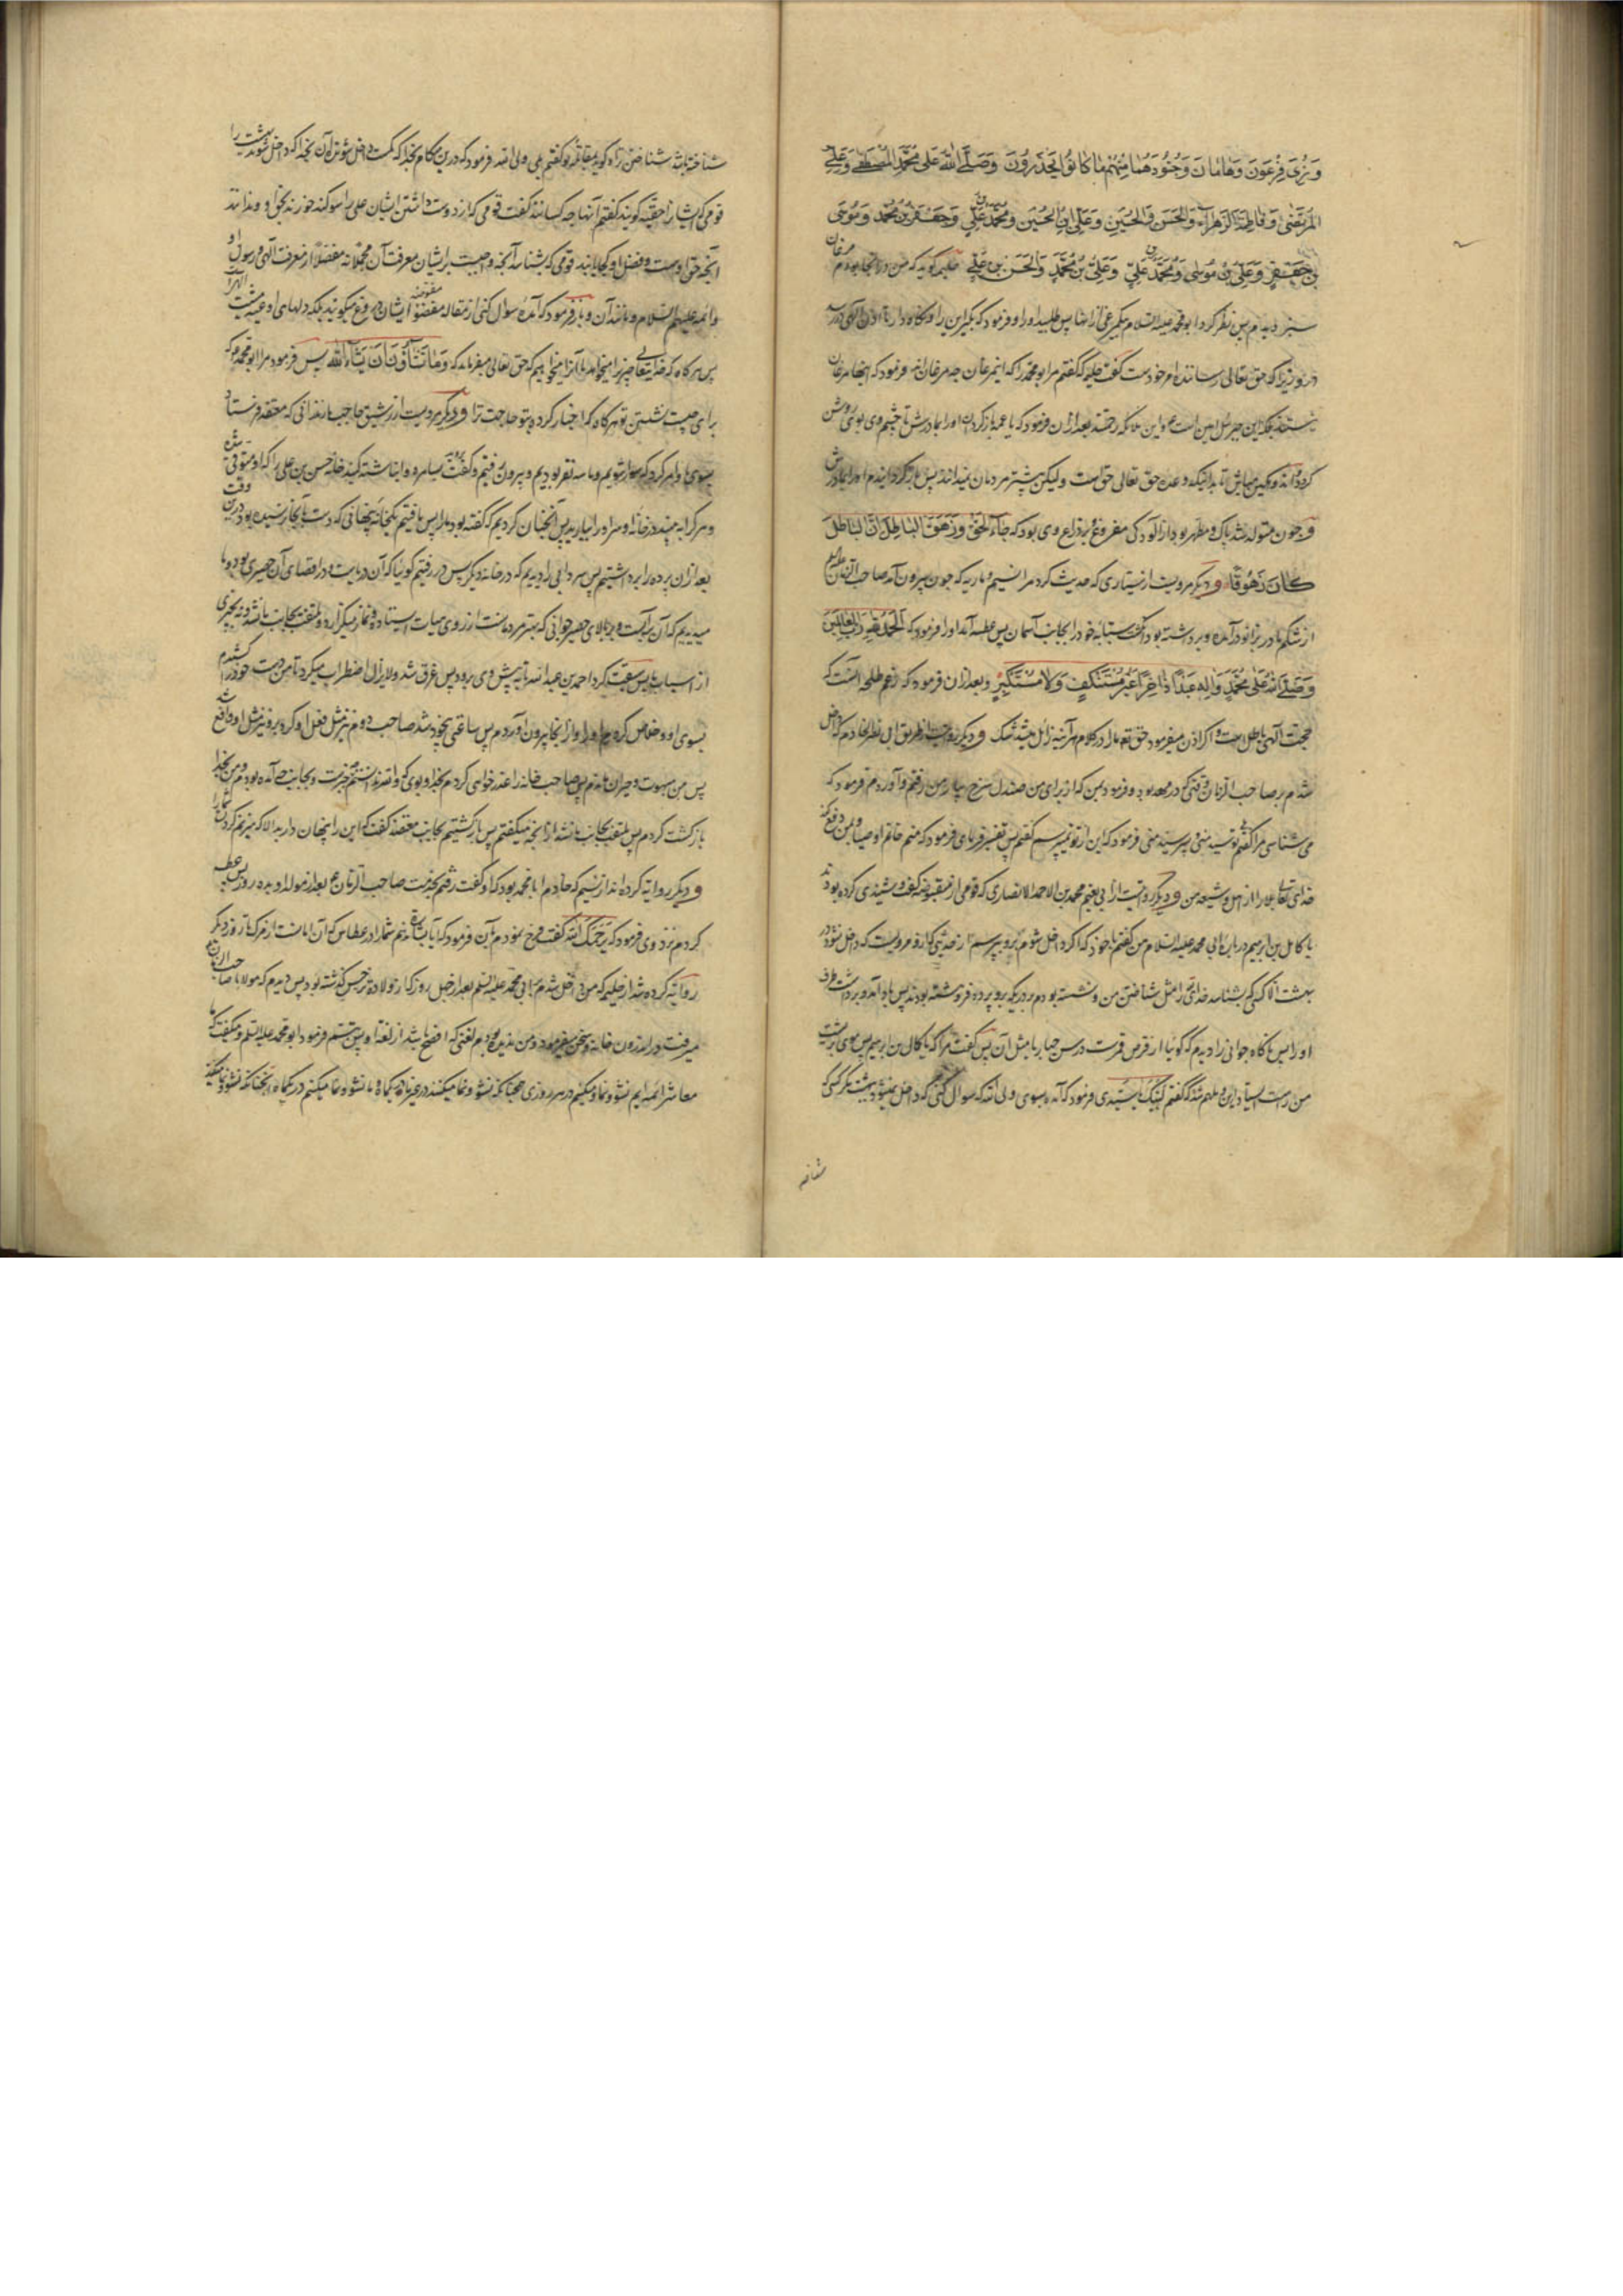 وَنُرِيَ فِرْعَوْنَ وَهَامَانَ وَجُنُودَهُمَا مِنْهُم مَا كَانُوا يَحْذَرُونَ وَصَلَّى اللّٰه عَلَى مُحَمَّدٍ المُصْطَفَى وَعَلِيٍّ
المُرْتَضَى وَفَاطِمَةَ الزَهْرَاءِ وَالحَسَنِ وَالحُسَيْنِ وَعَلِيِّ ابْنِ الحُسَيْنِ وَمُحَمَّدِ بن عَلِيٍّ وَجَعْفَرِ بْنِ مُحَمَّدٍ وَمُوسَى
بْنِ جَعْفَرٍ وَعَلِيِّ بْنِ مُوسَى وَمُحَمَّدِ بن عَلِيٍّ وَعَلِيِّ بْنِ مُحَمَّدٍ وَالحَسَنِ بْنِ عَلِيٍّ حلیمه کوید که من در انجا بودم مرغان
سبز دیدم پس نظر کرد ابو محمد علیه السلام بیکمرغی از انها پس طلبید او را و فرمود که بکیر این را و نکاه دار تا اذن الهی در رسد
در وی زیرا که حق تعالی رساننده امر خودست گفت حلیمه که کفتم مر ابو محمد را که اینمرغان چه مرغان اند فرمود که اینها مرغان
نیستند بلکه این جبرئیل امین است و این ملائکه رحمتند بعد از ان فرمود که یا عمه بازکردان او را بمادرش تا چشم وی بوی روشن
کردد و اندوهکین نباشد تا بداندیکه وعده حق تعالی حق است ولیکن بیشتر مردمان نمیدانند پس بازکردانیدم او را بمادرش
و چون متولد شد پاک و مطهر بود از آلودکی مفروغ بر ذراع وی بود که جَاءَ الحَقُّ وَزَهَقَ البَاطِلُ إِنَّ البَاطِلَ
كَانَ زَهُوقًا و دیکر مرویست از سیاری که حدیث کرد مرا نسیم و ماریه که چون بیرون آمد صاحب الزمان علیه
از شکم مادر بزانو درآمده و برداشته بود انکشت سبابه خود را بجانب آسمان پس عطسه آمد او را فرمود که الحَمْدُ لِلّٰهِ رَبِّ العَالَمِينَ
وَصَلَّى اللّٰهُ عَلَى مُحَمَّدٍ وَآلِهِ عَبْدًا دَاخِرًا غَيْرَ مُسْتَنْكِفٍ وَلَا مُسْتَكْبِرٍ و بعد از ان فرمود که زعم ظلمه آنست که
حجت الهی باطل است و اکر اذن میفرمود حق تع ما را در کلام هر آینه زائل میشد شک و دیکر روایت از طریق ابی نظر خادم که داخل
شدم بر صاحب الزمان وقتی که در مهد بود و فرمود بمن که از برای من صندل سرخ بیار پس من رفتم و آوردم فرمود که
می شناسی مرا کفتم توسید منی و پسر سید منی فرمود که این را از تو نمیپرسم کفتم پس تفسیر فرمای فرمود که منم خاتم اوصیا و بمن دفع کند
خدای تعالی بلا را از اهل و شیعه من و دیکر روایت از ابی نعیم محمد بن الاحمد الانصاری که قومی از مفوضه کیف و شنیدی کرده بودند
با کامل بن ابرهیم در باره ابی محمد علیه السلام من کفتم با خود که اکر داخل شوم برو بپرسم از حدیثی که ازو مرویست که داخل نشود در
بهشت الا کسی که بشناسد خدای را مثل شناختن من و نشسته بودم بر دری که برو پرده فروهشته بودند پس باد آمد و برداشت طرف
او را پس ناکاه جوانی را دیدم که کوئیا از قرص قمرست در سن چهار یا مثل آن پس کفت مرا که یا کامل بن ابرهیم پس موی برتن
من راست ایستاد و ملهم شدم که کفتم لبیک یا سیدی فرمود که آمده بسوی ولی الله که سوال کنی که داخل نمیشود بهشت مکر کسی که
شناخته
شناخته باشد شناختن تو و کوید بمقاله تو کفتم بلی ولی الله فرمود که درین هنکام بخدا که کمست داخل شونده آن بخدا که داخل شوند بهشت را
قومی که ایشان را حقیه کویند کفتم آنها چه کسانند کفت قومی که از دوست داشتن ایشان علی را سوکند خورند بحق او و ندانند
آنچه حق اوست و فضل او
و ائمه علیهم السلام و مانند آن و باز فرمود که آمده سوال کنی از مقاله مفوضه ایشان دروغ میکویند بلکه دلهای ما اوعیه مشیت
پس هرکاه که خدایتعالی چیزرا میخواهد ما آنرا میخواهیم که حق تعالی میفرماید که وَمَا تَشَاؤُنَ إِلَّا أَنْ يَشَاءَ اللّٰه پس فرمود مرا ابو محمد که
برای چیست نشستن تو هرکاه که اخبار کرده بتو حاجت ترا و دیکر مرویست از رشیق حاجب مادرانی که معتضد فرستاد
بسوی ما و امر کرد که سوار شویم و ما سه نفر بودیم و بیرون رفتیم و کفت بروید بسامره و خانه حسن بن علی را که او متوفی شده
و هر کرا به بینید در خانه او سر او را بیارید پس آنچنان کردیم که کفته بود ما را پس یافتیم
بعد از ان پرده را برداشتیم پس سردابی را دیدیم که در خانه دیکر پس در رفتیم کوئیا که آن دریایست و در اقصای آن حصیری بود و ما
میدیدیم که آن برآبست و بر بالای حصیر جوانی که بهترین مردمانست از روی هیات ایستاده و نماز میکزارد و ملتفت بجانب ما نشد و نه بچیزی
از اسباب ما پس سبقت کرد احمد بن عبد الله تا به پیش وی رود پس غرق شد و لایزال اضطراب میکرد تا من دست خود را کشیدم
بسوی او و خلاص کردم او را و از انجا بیرون آوردم پس ساعتی بیخود شد صاحب دوم نیز مثل فعل او کرد برو نیز مثل او واقع شد
پس من مبهوت و حیران ماندم پس صاحب خانه را عذر خواهی کردم
بازکشت کردم پس ملتفت بجانب ما نشد از آنچه میکفتم پس بازکشتیم بجانب معتضد کفت که این را پنهان دارید الا که بزنم کردن شما را
و دیکر روایة کرده اند از نسیم که خادم ابا محمد بود که او کفت رفتم بخدمت صاحب الزمان بعد از مولد او بده روز پس عطسه
کردم نزد وی فرمود که يَرْحَمُكِ اللّٰه کفت فرح نمودم بآن فرمود که آیا بشارت ندهم شما را در عطاس که آن امانت از مرک تا سه روز دیکر
روایة کرده شد از حلیمه که من داخل شدم بر ابی محمد علیه السلم بعد از چهل روز که از ولادة نرجس کذشته بود پس دیدم که مولانا صاحب الزمان
میرفت در اندرون خانه و سخن میفرمود و من ندیده بودم لغتی که افصح باشد از لغة او پس تبسم فرمود ابو محمد علیه السلم و میکفت که ما
معاشر ائمه ایم نشو و نما میکنیم در هر روزی همچنانکه نشو و نما میکنند